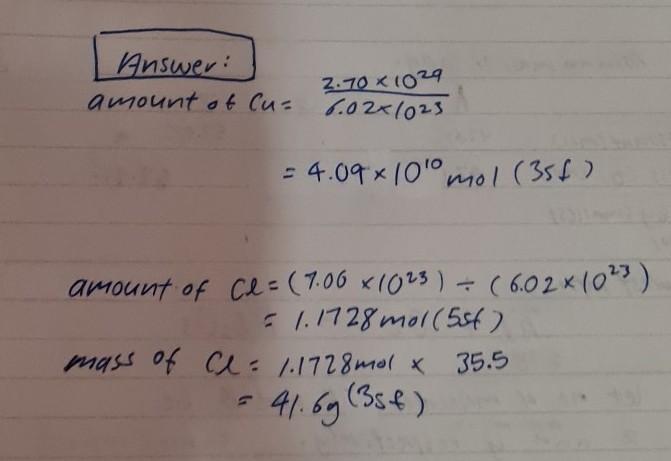 Answer:
amount of Cu = 2.70 × 10²⁹
6.02×10²³
= 4.09 × 10¹⁰ mol (3sf)
amount of Cl = (7.06 ×10²³) ÷ (6.02×10²³)
= 1.1728 mol (5sf)
mass of Cl = 1.1728 mol × 35.5
= 41.6g (3sf)